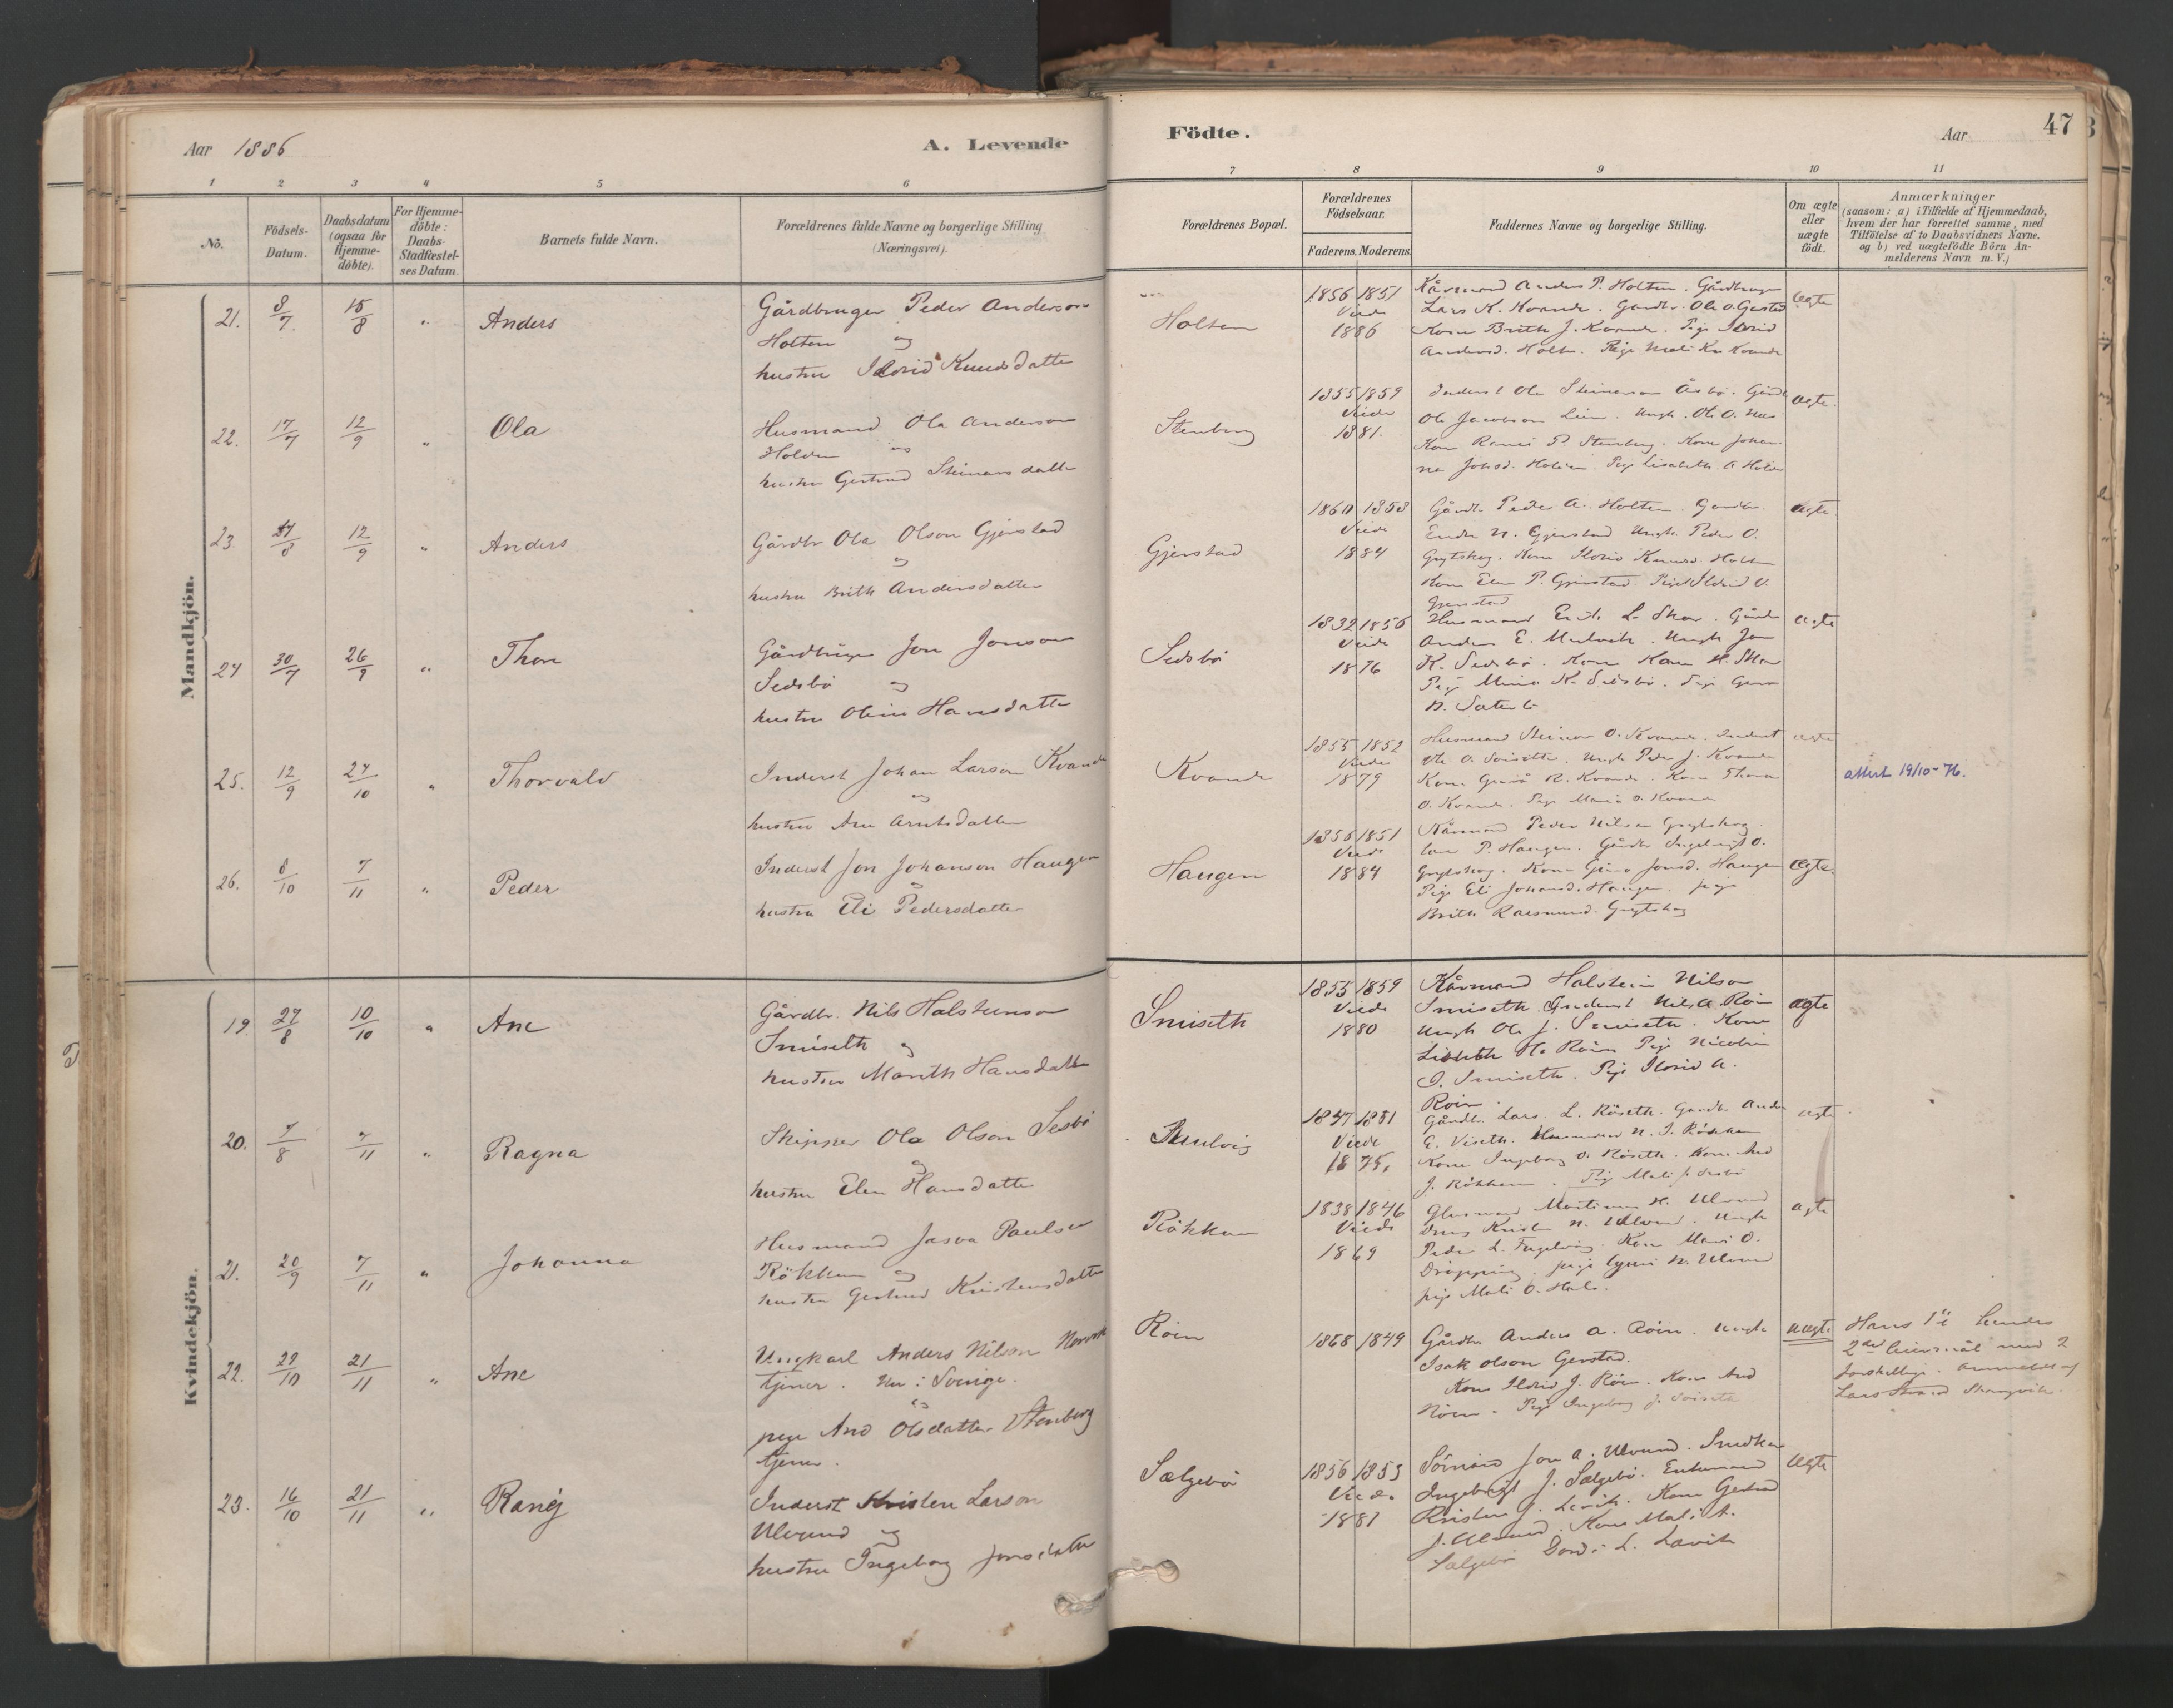 Aar 1886
A. Levende
Födte.
Aar
47
1 2 3 4 5 6 7 8 9 10 11
No.
Födsels-
Datum.
Daabsdatum
(ogsaa for
Hjemme-
döbte).
For Hjemme-
döbte:
Daabs-
Stadfæstel-
ses Datum.
Barnets fulde Navn.
Forældrenes fulde Navne og borgerlige Stilling
(Næringsvei).
Forældrenes Bopæl.
Forældrenes
Födselsaar.
Faderens. Moderens.
Faddernes Navne og borgerlige Stilling.
Om ægte
eller
uægte
födt.
Anmærkninger
(saasom: a) i Tilfælde af Hjemmedaab,
hvem der har forrettet samme, med
Tilföielse af to Daabsvidners Navne.
og b) ved uægtefödte Börn An-
melderens Navn m. V.)
Mandkjön.
21. 8/7 15/8 " Anders
Gårdbruger Peder Anderson
Holten og
hustru Ildrid Knudsdatter
Holten
1856 1851
Viede
1886
Kårmand Anders P. Holten. Gårdbruger
Lars K. Kvande. Gardbr. Ole O. Gjestad
Kone Brith J. Kvande. Pige Ildrid
Andersd. Holten. Pige Mali Kvande
ægte
22. 17/7 12/9 " Ola
Husmand Ola Anderson
Holden og
hustru Gertrud Steinarsdatter
Stenberg
1855 1859
Viede
1881.
Inderst Ole Steinerson Åsbö. Gårdb
Ole Jacobson Lien. Ungk. Ole O.
Kone P. Stenberg. Kone Johan-
na Johsd. Pige Lisabeth A
ægte.
23. 27/8 12/9 " Anders
Gårdbr Ola Olson Gjerstad
og
hustru Brith Andersdatter
Gjerstad
1860 1858
Viede
1884
Gårdb. Peder A. Holten. Gardbr.
Endre N. Gjerstad Ungk. Peder O.
Grytskog. Kone Ildrid Knudsd. Holten
Kone Elen P. Gjerstad. Pige Ildrid O.
Gjerstad
ægte.
24 30/7 26/9 " Thore
Gårdbruger Jon Jonson
Sedsbö og
hustru Oline Hansdatter
Sedsbö
1832 1856
Viede
1876
Husmand Erik L. Skar. Gårdb
Anders E. Mulvik. Ungk Jon
K. Sedsbö. Kone Kari H. Skar
Pige K. Sedsbö. Pige
ægte
25. 12/9 24/10 " Thorvald
Inderst Johan Larson Kvande
og
hustru Ane Arntsdatter
Kvande
1855 1852
Viede
1879
Husmand Steinar O. Kvande. Inderst
Ole O. Ungk Peder J. Kvande
Kone R. Kvande. Kone
O. Kvande. Pige Maria O. Kvande
ægte
attest 19/10-76.
26. 8/10 7/11 " Peder
Inderst Jon Johanson Haugen
og
hustru Eli Pedersdatter
Haugen
1856 1851
Viede
1884
Kårmand Peder Nilsen Grytskog
P. Haugen. Gårdbr Ingebrigt O.
Grytskog. Kone Jonsd. Haugen
Pige Eli Johansd. Haugen. pige
Brith Rasmusd. Grytskog
ægte.
Kvindekjön.
19. 27/8 10/10 " Ane
Gårdbr. Nils Halstenson
Smiseth og
hustru Marith Hansdatter
Smiseth
1855 1859
Viede
1880
Kårmand Halstein Nilson
Smiseth. Inderst Nils A. Röen
Ungk Ole J. Smiseth. Kone
H. Röen Pige Nicoline
I. Smiseth. Pige Ildrid A.
Röen.
ægte
20. 7/8 7/11 " Ragna
Skipper Ola Olson Sesbö
og
hustru Elen Hansdatter
1847 1851
Viede
1875.
Gårdbr. Lars L. Röseth. Gardb. Anders
E. Viseth. N. J. Rökkum
Kone Ingeborg O. Röseth. Kone And
J. Rökkum. Pige Mali J. Sesbö
ægte
21. 20/9 7/11 " Johanna
Husmand Paulsen
Rökkum og
hustru Gertrud Kristensdatter
Rökkum
1838 1846
Viede
1869
Mortinus H. Ulvund
Dreng Kristen N. Ulvund. Ungk
Peder L. Kone Mari O.
Dröpping. pige N. Ulvund
pige Mali O.
ægte
22. 29/10 21/11 " Ane
Ungkarl Anders Nilson
tjener. Nu i Sverige.
og
pige And Olsdatter Stenberg
tjener.
Röen
1868 1849
Gårdbr. Anders A. Röen. Ungk
Isak Olson Gerstad.
Kone Ildrid J. Röen. Kone And
Röen. Pige Ingeborg J.
uægte
Hans 1ste hendes
2det leiermål med 2
forskellige. Anmeldt af
Lars Strand Stangvik.
23. 16/10 21/11 " Ranei
Inderst Kristen Larson
Ulvund og
hustru Ingeborg Jonsdatter
Sælgebö
1856 1853
Viede
1881
Jon A. Ulvund. Snedker
Ingebrigt J. Sælgebö. Enkemand
Kristen J. Kone Gertrud
J. Ulvund. Kone Mali A.
Sælgebö L.
ægte